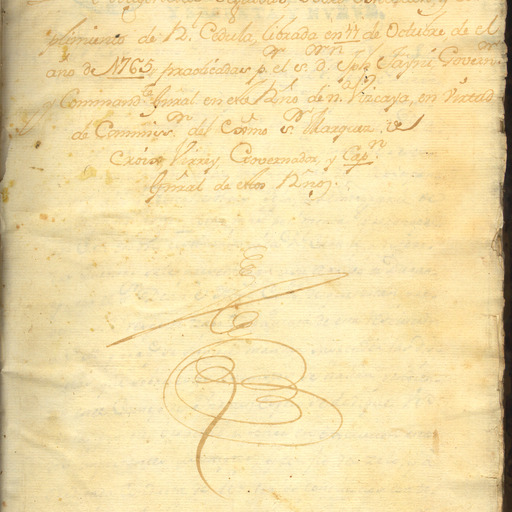 plimiento de Rl. Cedula librada en 17 de Octubre de el
año de 1765, practicadas pr. el sr. Dn. Jph Fayni Governr.
y Commandte. Gnral en este Rno. de na. Vizcaya, en virtud
de Commissn. del Exmo sr. Marquez de
Croix Virrey Governador, y Capn.
Gnral de estos Rnos.